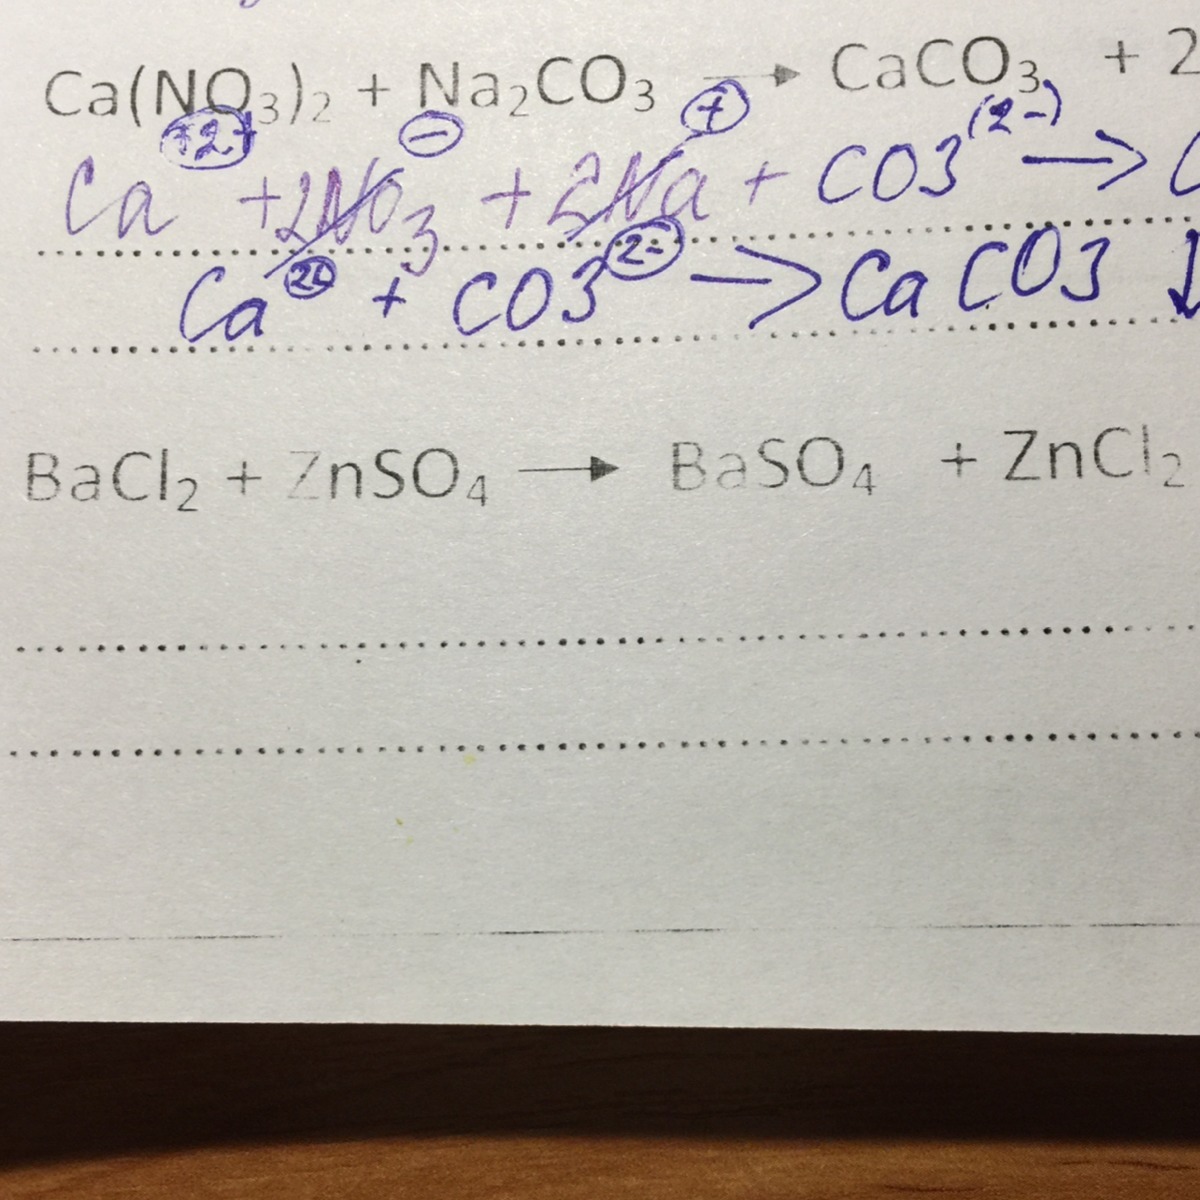 Ca(NO₃)₂ + Na₂CO₃ → CaCO₃ + 2
Ca²⁺ + 2NO₃⁻ + 2Na⁺ + CO3⁽²⁻⁾ → C
Ca + CO3²⁻ → CaCO3 ↓
BaCl₂ + ZnSO₄ → BaSO₄ + ZnCl₂